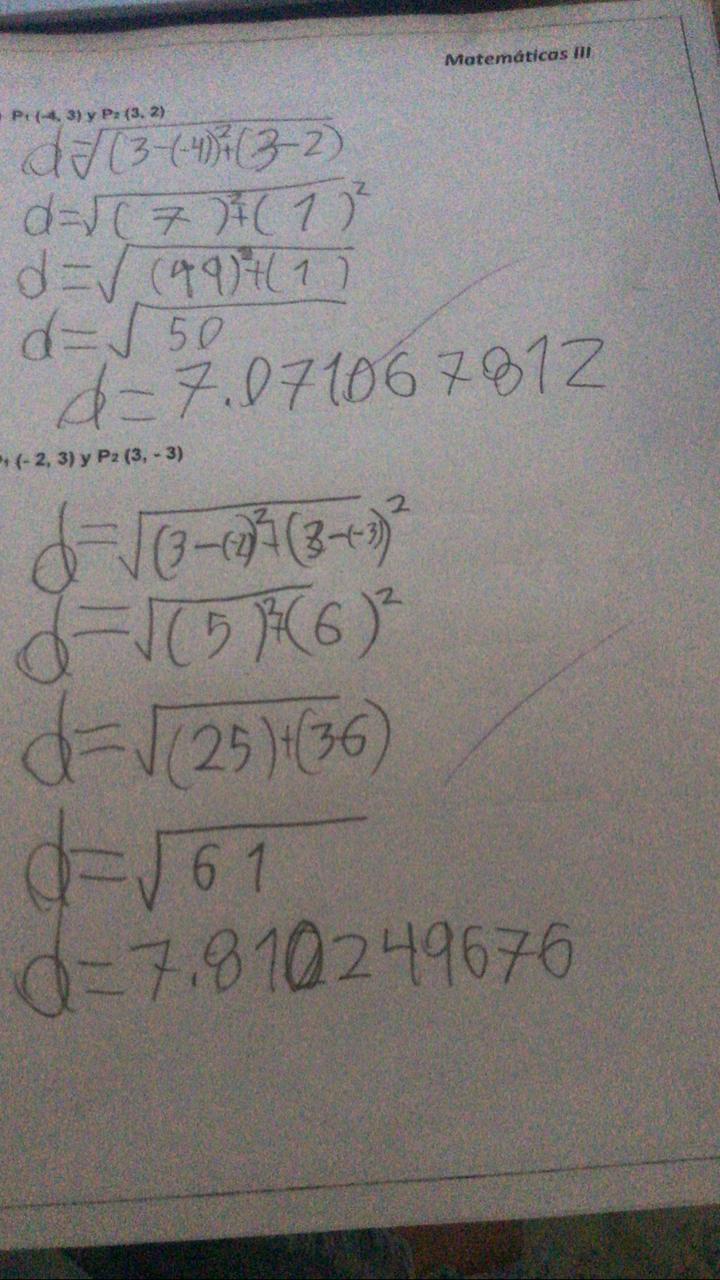 Matemáticas III
P₁ (-4, 3) y P₂ (3, 2)
d=√(3-(-4))²+(3-2)
d=√( 7 )²+( 1 )²
d=√(49)²+( 1 )
d=√50
d=7.071067812
P₁ (- 2, 3) y P₂ (3, - 3)
d=√(3-(-2)²+(3-(-3))²
d=√( 5 )²+(6 )²
d=√(25)+(36)
d=√61
d=7.810249676